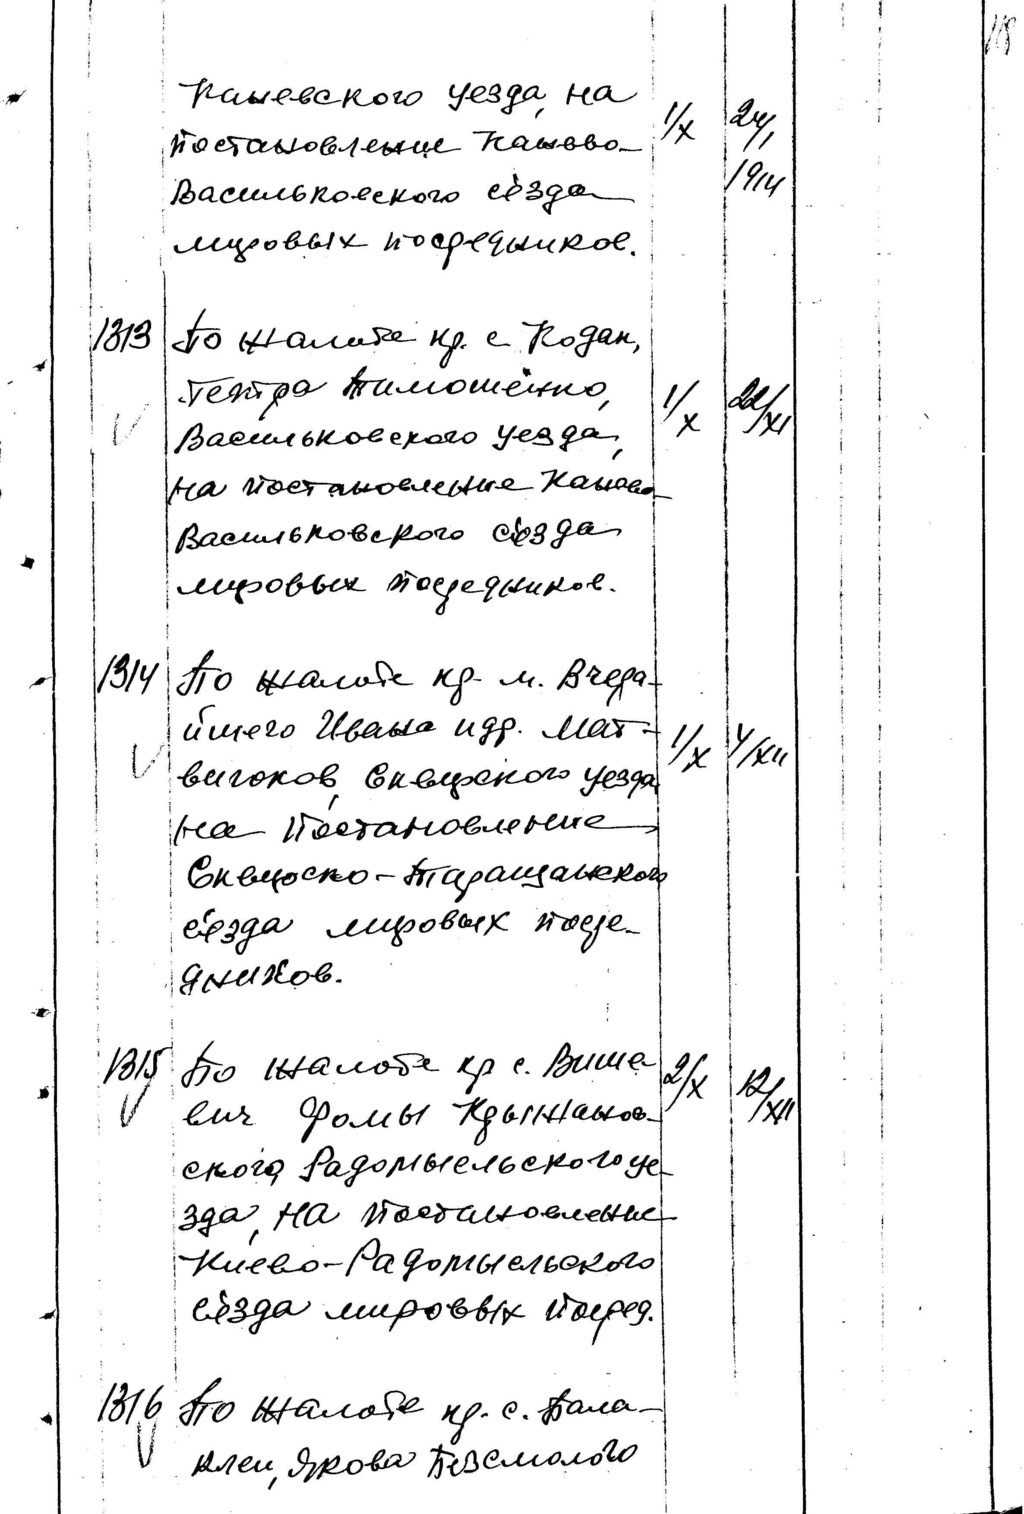 Каневского уезда, на 1/X 24/I
постановление Канево-
Васильковского съезда 1914
мировых посредников.
1313 По жалобе кр. с. Кодак,
Петра Тимошенко, 1/X 22/XI
Васильковского уезда,
на постановление Канево-
Васильковского съезда
мировых посредников.
1314 По жалобе кр. м. Вчера-
йшего Ивана и др. Мат- 1/X 4/XII
виюков, Сквирского уезда
на постановление
Сквирско-Таращанского
съезда мировых посре-
дников.
1315 По жалобе кр. с. Више 2/X 12/XII
вич Фомы Крыжанов-
ского, Радомысльского уе-
зда, на постановление
Киево-Радомысльского
съезда мировых посред.
1316 По жалобе кр. с. Бала-
клеи, Якова Безсмолого